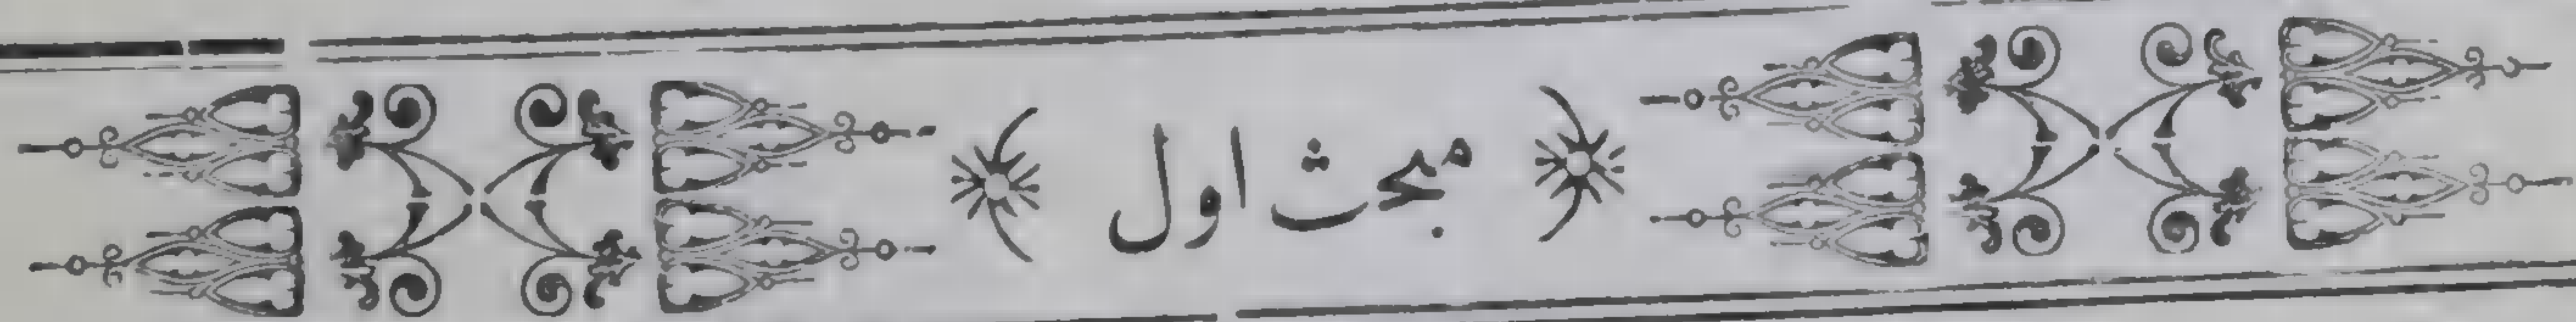 مبحث اول